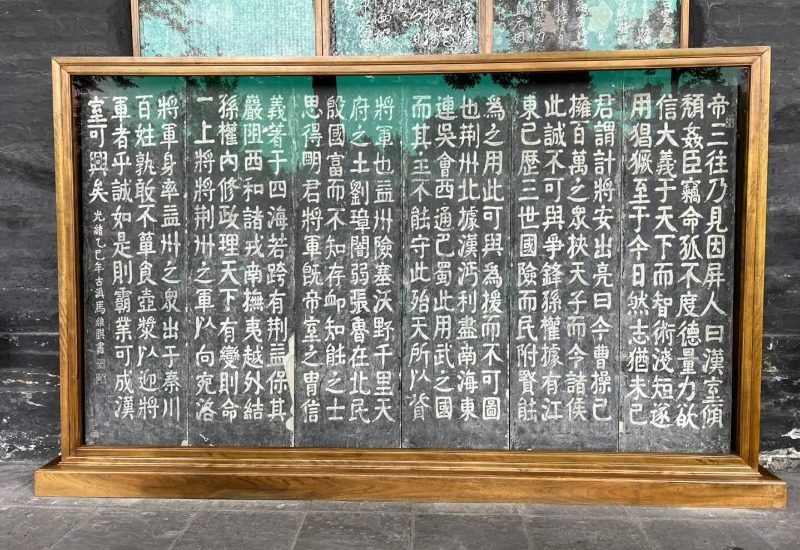 帝三往乃見因屏人曰漢室傾
頹姦臣竊命孤不度德量力欲
信大義于天下而智術淺短遂
用猖獗至于今日然志猶未已
君謂計將安出亮曰今曹操已
擁百萬之眾挾天子而令諸侯
此誠不可與爭鋒孫權據有江
東已歷三世國險而民附賢能
為之用此可與為援而不可圖
也荊州北據漢沔利盡南海東
連吳會西通巴蜀此用武之國
而其主不能守此殆天所以資
將軍也益州險塞沃野千里天
府之土劉璋闇弱張魯在北民
殷國富而不知存卹知能之士
思得明君將軍既帝室之胄信
義著于四海若跨有荊益保其
巖阻西和諸戎南撫夷越外結
孫權內修政理天下有變則命
一上將將荊州之軍以向宛洛
將軍身率益州之眾出于秦川
百姓孰敢不簞食壺漿以迎將
軍者乎誠如是則霸業可成漢
室可興矣 光緒乙巳年古滇馬維騏書